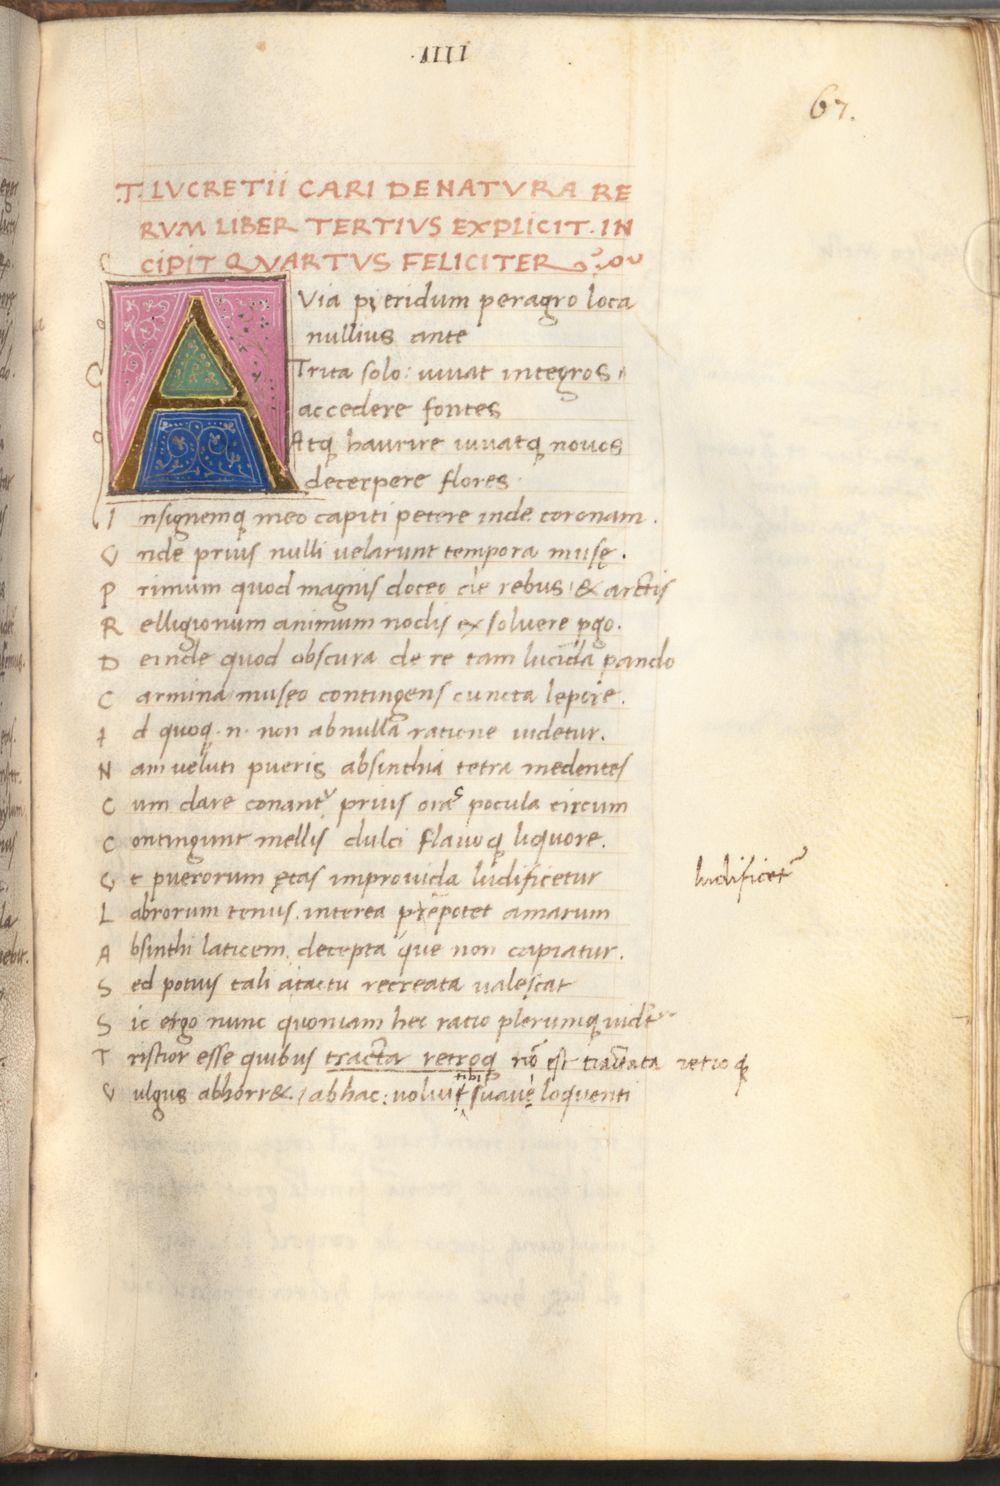 .VIIII
67.
.T. LVCRETII CARI DE NATVRA RE
RVM LIBER TERTIVS EXPLICIT. IN
CIPIT QVARTVS FELICITER
AVia pieridum peragro loca
nullius ante
Trita solo: iuuat integros
accedere fontes
Atq haurire iuuatq nouos
decerpere flores.
Insignemq meo capiti petere inde coronam.
Vnde prius nulli uelarunt tempora musę.
Primum quod magnis doceo de rebus: & arctis
Relligionum animum nodis exsoluere pgo.
Deinde quod obscura de re tam lucida pando
Carmina museo contingens cuncta lepore.
Id quoq .n. non ab nulla ratione uidetur.
Nam ueluti pueris absinthia tetra medentes
Cum dare conant prius oras pocula circum
Contingunt mellis dulci flauoq liquore.
Vt puerorum ętas improuida ludificetur
ludificet
Labrorum tenus. interea potet amarum
Absinthi laticem deceptaque non capiatur.
Sed potius tali atactu recreata ualescat
Sic ergo nunc quoniam hec ratio plerumq uidet
Tristior esse quibus tracta retroq nō est tractata retroq
tibi
Vulgus abhorr& ab hac: uolui suaue loquenti